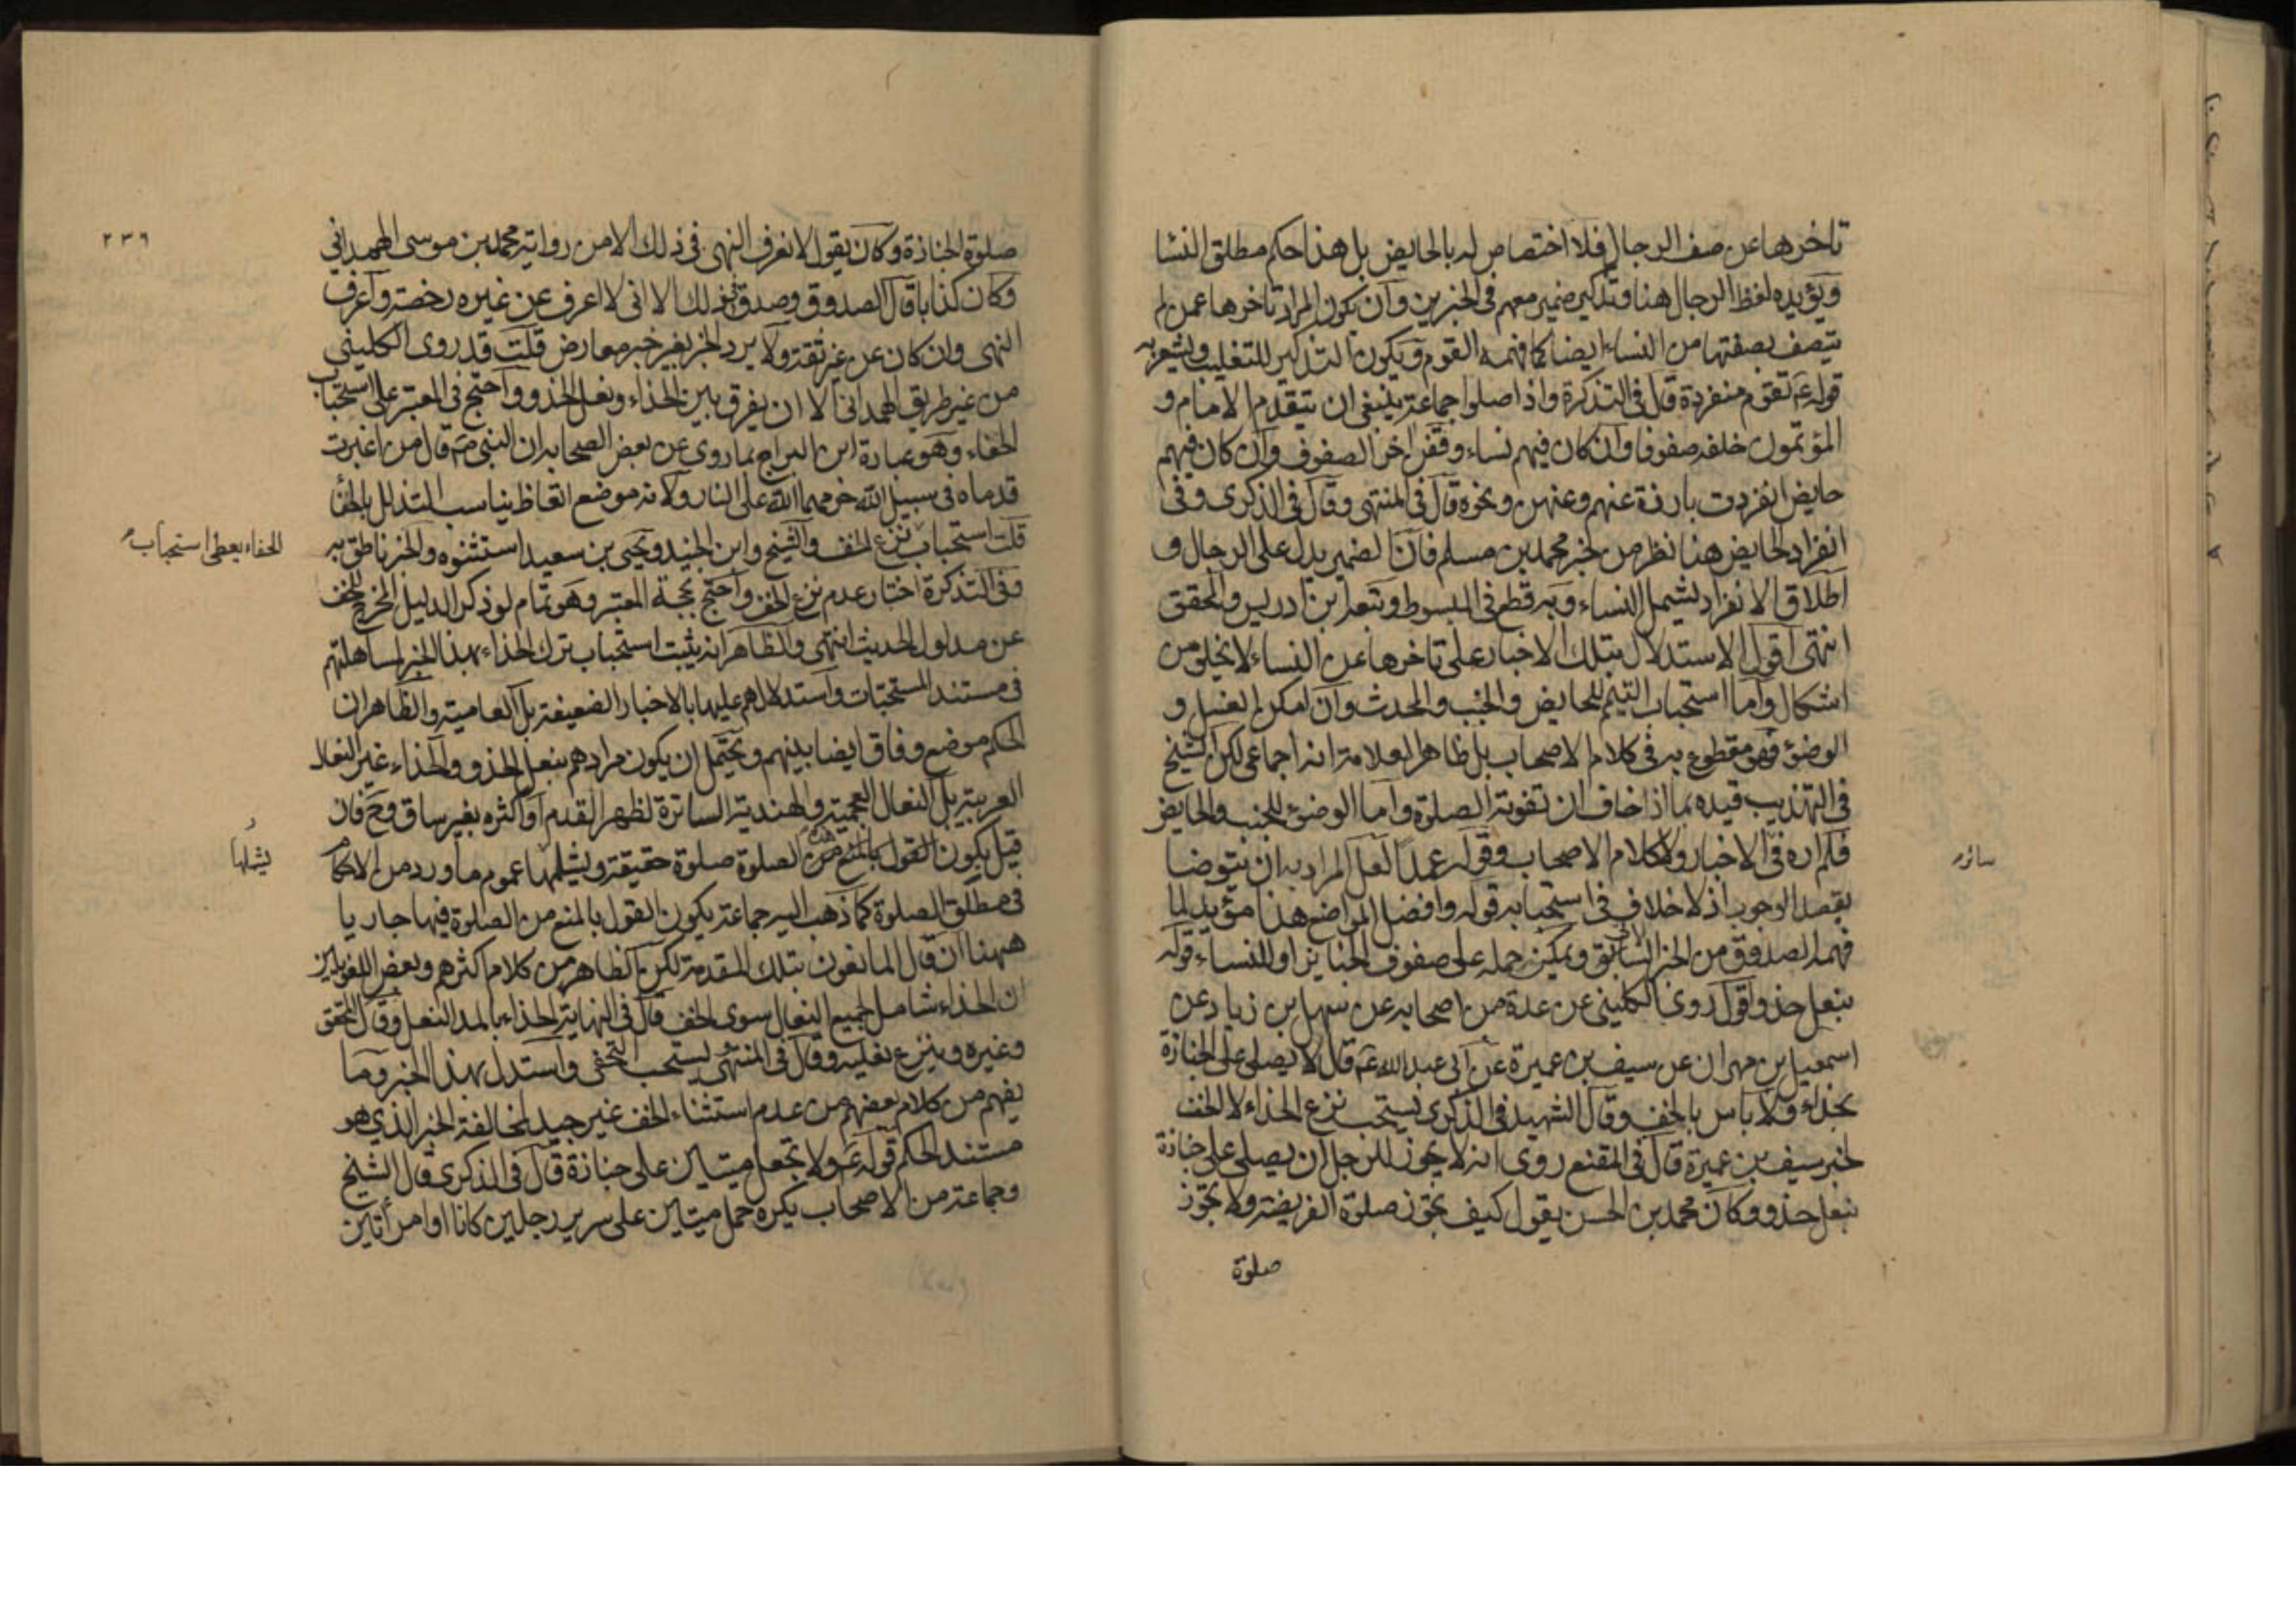 تاخرها عن صف الرجال فلا اختصاص له بالحايض بل هذا حكم مطلق النسا
ويؤيده لفظ الرجال هنا وتذكير ضمير معهم في الخبرين وان يكون المراد تاخرها عمن لم
يتصف بصفتها من النساء ايضا كما فهمه القوم ويكون التذكير للتغليب ويشعر به
قوله ع تقوم منفردة قال في التذكرة واذا صلوا جماعة ينبغي ان يتقدم الامام و
المؤتمون خلفه صفوفا وان كان فيهم نساء وقفن اخر الصفوف وان كان فيهم
حايض انفردت بارزة عنهم وعنهن ونحوه قال في المنتهى وقال في الذكرى وفي
انفراد الحايض هنا نظر من خبر محمد بن مسلم فان الضمير يدل على الرجال و
اطلاق الانفراد يشمل النساء وبه قطع في المبسوط وتبعه ابن ادريس والمحقق
انتهى اقول الاستدلال بتلك الاخبار على تاخرها عن النساء لا يخلو من
اشكال واما استحباب التيمم للحايض والجنب والمحدث وان امكن الغسل و
الوضوء فهو مقطوع به في كلام الاصحاب بل ظاهر العلامة انه اجماعي لكن الشيخ
في التهذيب قيده بما اذا خاف ان تفوته الصلوة واما الوضوء للجنب والحايض
فلم اره في الاخبار ولا كلام الاصحاب وقوله عمدا لعل المراد به ان يتوضا
سائر
بقصد الوجوب اذ لا خلاف في استحبابه قوله وافضل المواضع هذا مؤيد لما
فهمه الصدوق من الخبر السابق ويمكن حمله على صفوف الجنايز او للنساء قوله
بنعل حذو اقول روى الكليني عن عدة من اصحابه عن سهل بن زياد عن
اسمعيل بن مهران عن سيف بن عميرة عن ابي عبد الله ع قال لا يصلى على الجنازة
بحذاء ولا باس بالخف وقال الشهيد في الذكرى يستحب نزع الحذاء لا الخف
لخبر سيف بن عميرة قال في المقنع روى انه لا يجوز للرجل ان يصلي على جنازة
بنعل حذو وكان محمد بن الحسن يقول كيف تجوز صلوة الفريضة ولا تجوز
صلوة
٢٣٦
صلوة الجنازة وكان يقول لا نعرف النهى في ذلك الا من رواية محمد بن موسى الهمداني
وكان كذابا قال الصدوق وصدق في ذلك الا اني لا اعرف عن غيره رخصة واعرف
النهى وان كان عن غير ثقة ولا يرد الخبر بغير خبر معارض قلت قد روى الكليني
من غير طريق الهمداني الا ان يفرق بين الحذاء ونعل الحذو واحتج في المعتبر على استحباب
الحفاء وهو عبارة ابن البراج بما روى عن بعض الصحابة ان النبي ص قال من اغبرت
قدماه في سبيل الله حرمهما الله على النار ولانه موضع اتعاظ يناسب التذلل بالحفا
قلت استحباب نزع الخف والشيخ وابن الجنيد ويحيى بن سعيد استثنوه والخبر ناطق به
الحفاء يعطى استحباب
وفي التذكرة اختار عدم نزع الخف واحتج بحجة المعتبر وهو تمام لو ذكر الدليل المخرج للخف
عن مدلول الحديث انتهى والظاهر انه يثبت استحباب ترك الحذاء بهذا الخبر لمساهلتهم
في مستند المستحبات واستدلالهم عليها بالاخبار الضعيفة بل العامية والظاهر ان
الحكم موضع وفاق ايضا بينهم ويحتمل ان يكون مرادهم بنعل الحذو والحذاء غير النعال
العربية بل النعال العجمية والهندية الساترة لظهر القدم او اكثره بغير ساق وح فان
قيل بكون القول بالمنع من هذه الصلوة صلوة حقيقة ويشملها عموم ما ورد من الاحكام
يشملها
في مطلق الصلوة كما ذهب اليه جماعة يكون القول بالمنع من الصلوة فيها جاريا
ههنا ان قال المانعون بتلك المقدمة لكن الظاهر من كلام اكثرهم وبعض اللغويين
ان الحذاء شامل لجميع النعال سوى الخف قال في النهاية الحذاء بالمد النعل وقال المحقق
وغيره وينزع نعليه وقال في المنتهى يستحب التحفي واستدل بهذا الخبر وما
يفهم من كلام بعضهم من عدم استثناء الخف غير جيد لمخالفة الخبر الذي هو
مستند الحكم قوله ع ولا تجعل ميتين على جنازة قال في الذكرى قال الشيخ
وجماعة من الاصحاب يكره حمل ميتين على سرير رجلين كانا او امرأتين